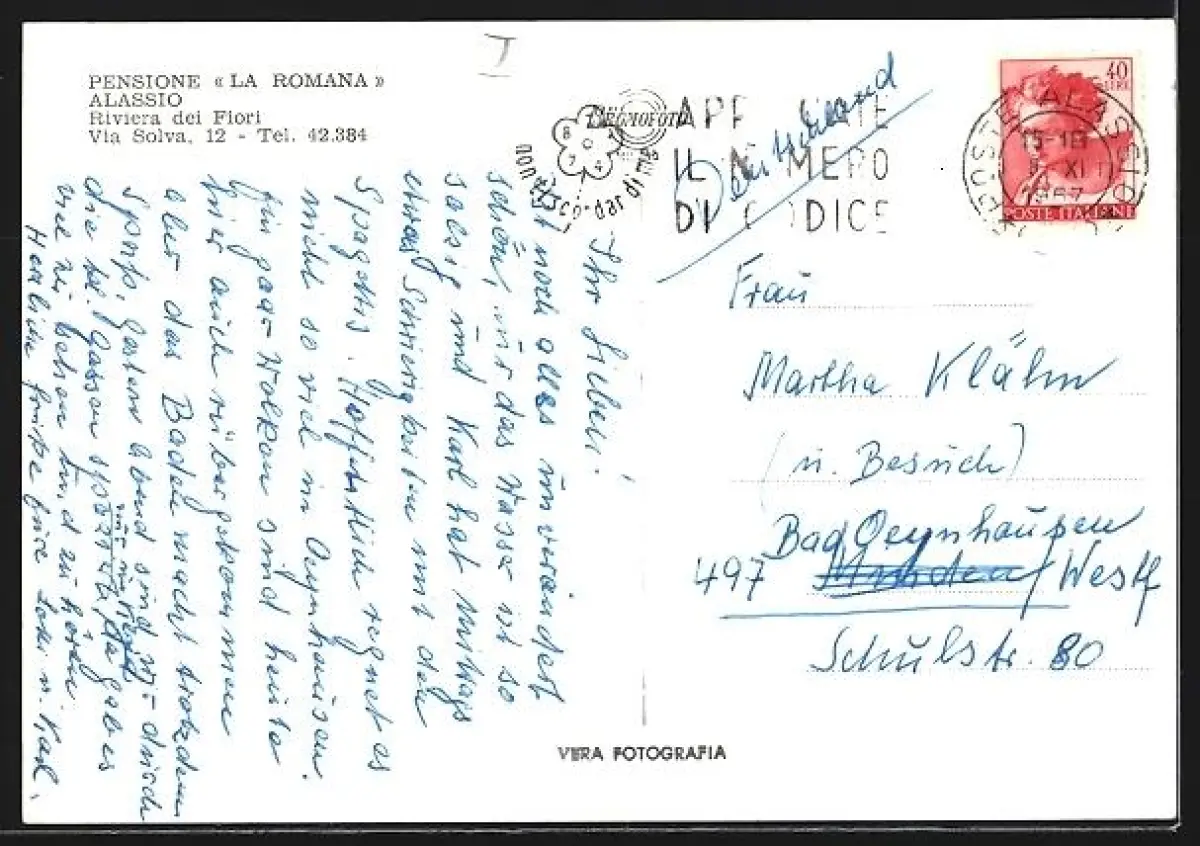 PENSIONE « LA ROMANA »
ALASSIO
Riviera dei Fiori
Via Solva, 12 - Tel. 42.384
I
40
LIRE
POSTE ITALIANE
ALASSIO
15-18
XI
1967
IL NUMERO
DI CODICE
non
dar di
Deutschland
Ihr Lieben!
Ist noch alles unverändert
schön, nur das Wasser ist so
salzig und Karl hat mittags
etwas Schwierigkeiten mit den
Spagettis. Hoffentlich regnet es
nicht so viel in Oeynhausen.
Ein paar Wolken sind heute
hier auch rübergekommen
aber das Baden macht trotzdem
Spass. Gestern Abend sind wir durch
die kl. Gassen
viel zu sehen und zu hören.
Herzliche Grüsse Eure u. Karl.
Frau
Martha Klähn
(u. Besuch)
Bad Oeynhausen
497 Minden/Westf
Schulstr. 80
VERA FOTOGRAFIA